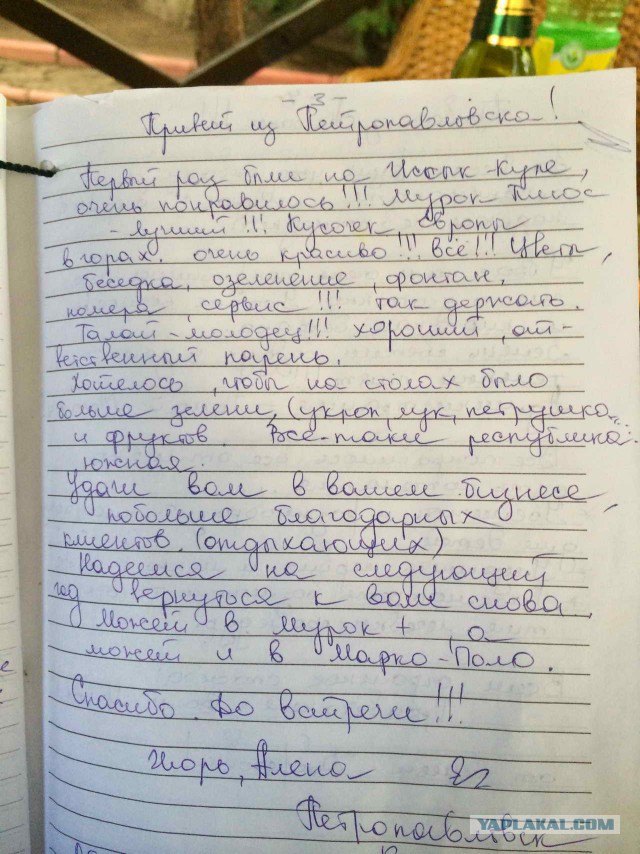 - 3 -
Привет из Петропавловска!
Первый раз были на Иссык-Куле,
очень понравилось!!! Мурок Плюс
- лучший!!! Кусочек Европы
в горах. очень красиво!!! всё!!! Цветы,
беседка, озеленение, фонтан,
номера, сервис!!! так держать.
Талай - молодец!!! хороший, от-
ветственный парень.
Хотелось, чтобы на столах было
больше зелени, (укроп, лук, петрушка
и фруктов. Всё-таки республика
южная.
Удачи вам в вашем бизнесе,
побольше благодарных
клиентов. (отдыхающих)
Надеемся на следующий
год вернуться к вам снова,
может в Мурок +, а
может и в Марко-Поло.
Спасибо. До встречи!!!
Игорь, Алена
Петропавловск
YAPLAKAL.COM